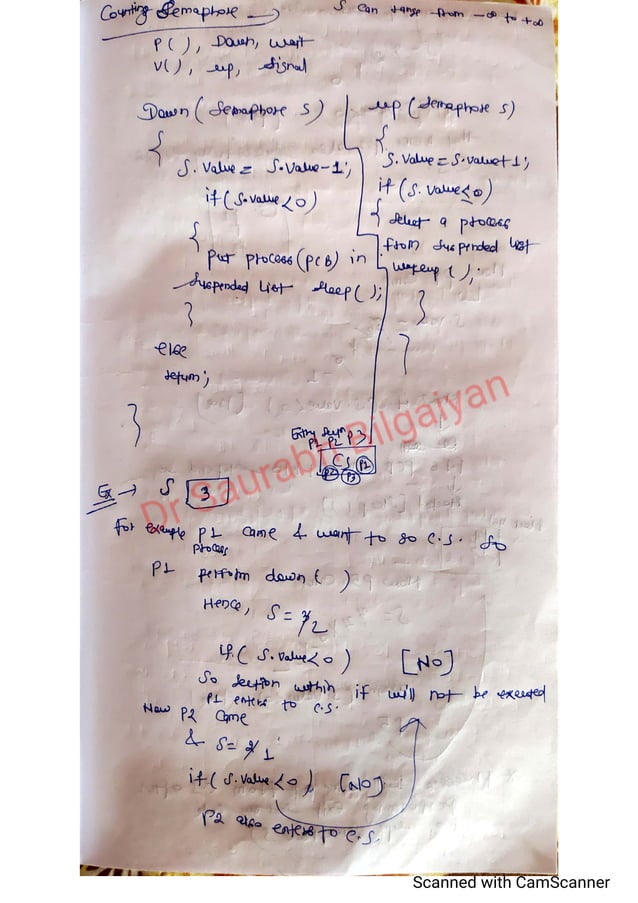 Counting Semaphore → S can range from -∞ to +∞
P(), Down, wait
V(), up, signal
Down (Semaphore S)
{
S.value = S.value-1;
if (S.value<0)
{
Put process (PCB) in
suspended list sleep();
}
else
return;
}
up (Semaphore S)
{
S.value = S.value+1;
if (S.value≤0)
{ select a process
from suspended list
wakeup();
}
}
Entry
P1 P2 P3
CS P1
P2 P3
Dr Saurabh Bilgaiyan
Ex → S 3
For example P1 came & want to go C.S. so
process
P1 perform down()
Hence, S = 3/2
if (S.value<0) [NO]
So section within if will not be executed
P1 enters to C.S.
Now P2 came
& S = 2/1
if (S.value<0) [NO]
P2 also enters to C.S.
Scanned with CamScanner